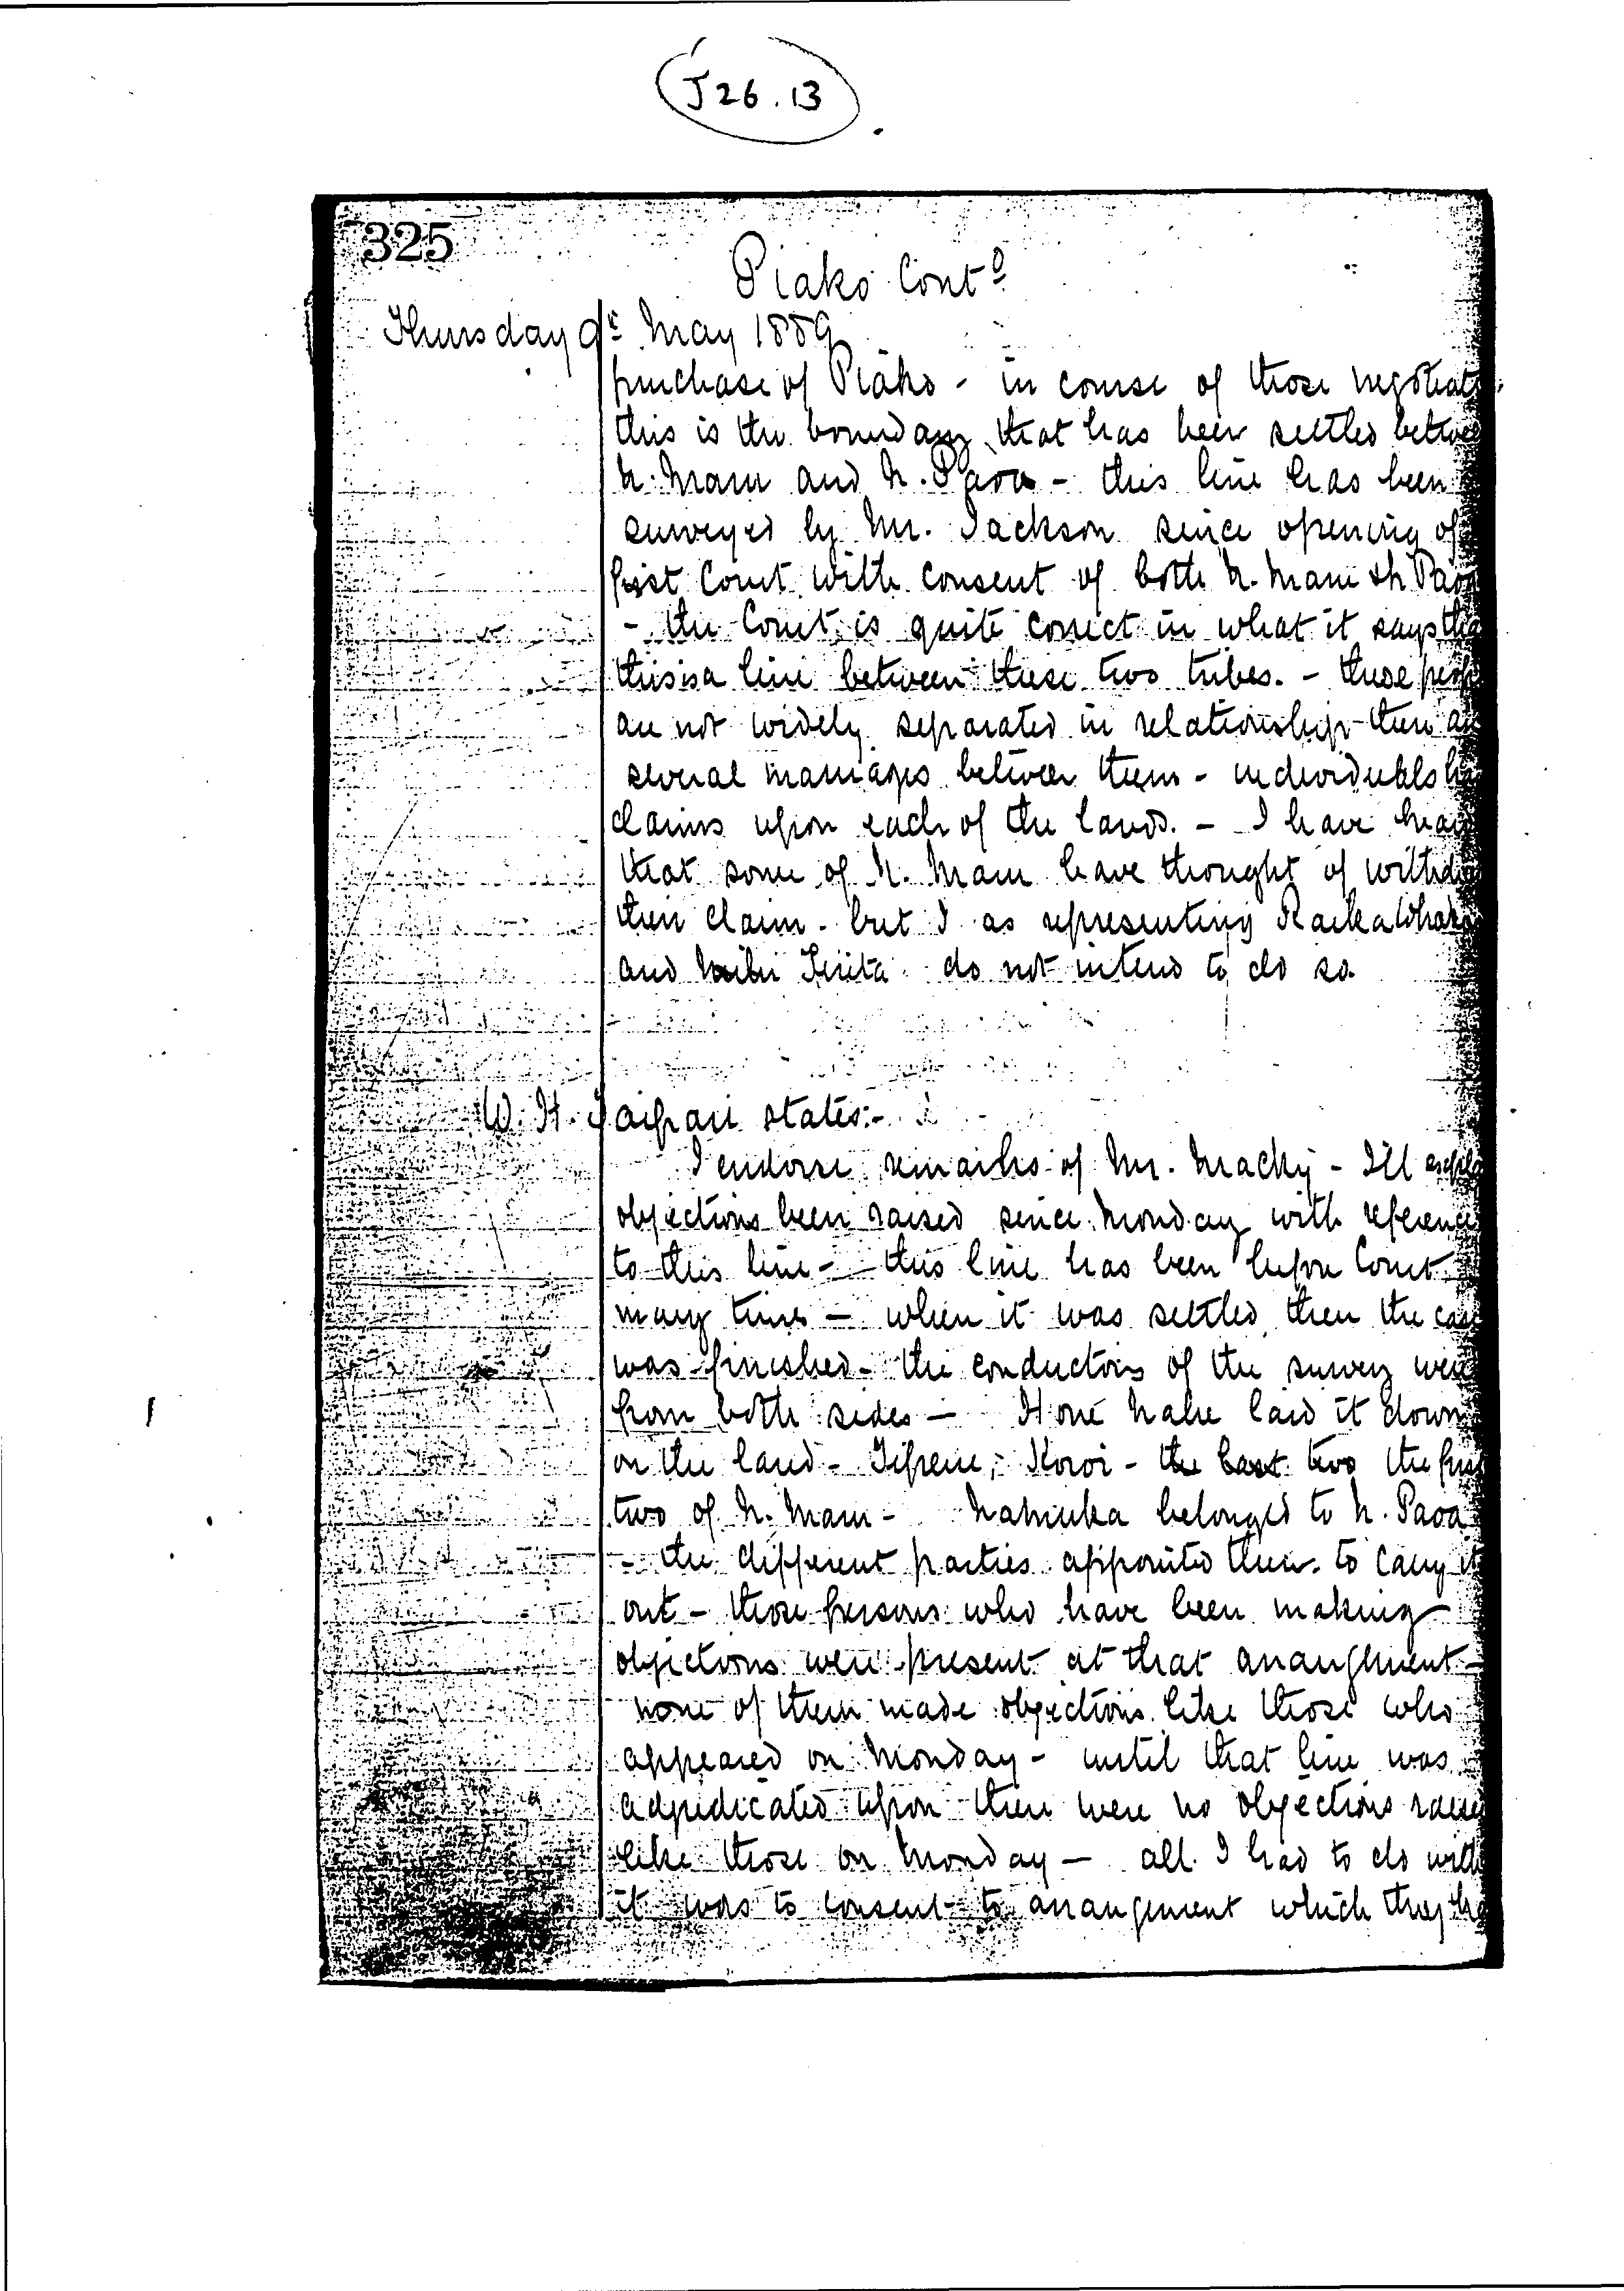 J 26.13
325
Piako Contd
Thursday 9th May 1889
purchase of Piako - in course of those negotiat
this is the boundary that has been settled betwee
N. Maru and N. Paoa - this line has been
surveyed by Mr. Jackson since opening of
first Court with consent of both N. Maru & N. Paoa
- the Court is quite correct in what it says tha
this is a line between these two tribes. - these peop
are not widely separated in relationship - there a
several marriages between them - individuals ha
claims upon each of the lands. - I have hear
that some of N. Maru have thought of withd
their claim - but I as representing
and do not intend to do so.
W. H. Taipari states:-
I endorse remarks of Mr. Macky - I'll expla
objections been raised since Monday with reference
to this line - this line has been before Court
many times - when it was settled then the case
was finished - the conductors of the survey were
from both sides - Hone Nahe laid it down
on the land - Tipene, Koroi - the last two the firs
two of N. Maru - belonged to N. Paoa
- the different parties appointed them to carry it
out - those persons who have been making
objections were present at that arangement -
none of them made objections like those who
appeared on Monday - until that line was
adjudicated upon there were no objections raise
like those on Monday - all I had to do with
it was to consent to arrangement which they ha